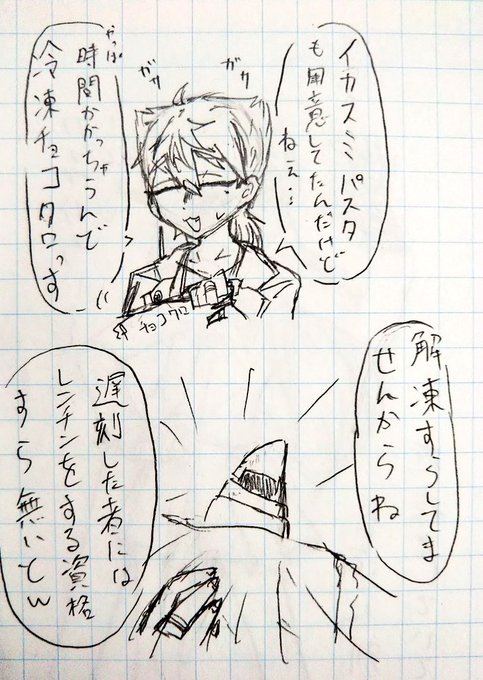 イカスミパスタ
も用意してたんだけど
ねぇ…
ガサ
ガサ
やっぱ
時間かかっちゃうんで
冷凍チョコクロっす
チョコクロ
解凍すらしてま
せんからね
遅刻した者には
レンチンをする資格
すら無いとw